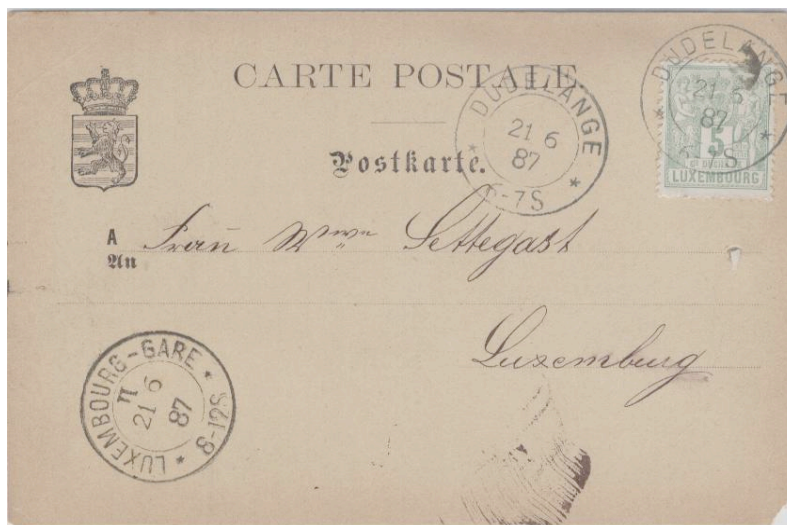 CARTE POSTALE
Postkarte.
DUDELANGE
21 6
87
6-7S
DUDELANGE
21 6
87
6-7S
5
CENTIMES
LUXEMBOURG
A Frau Wwe Settegast
An
Luxemburg
LUXEMBOURG-GARE
II
21 6
87
8-12S